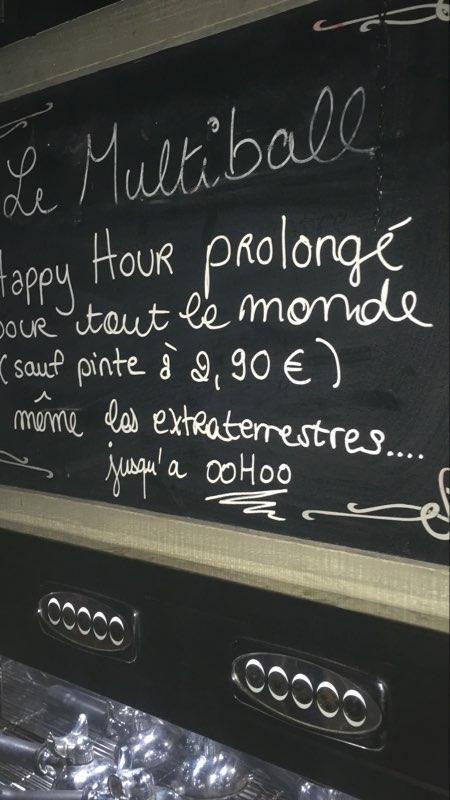 Le Multiball
Happy Hour prolongé
pour tout le monde
(sauf pinte à 2,90 €)
même les extraterrestres....
jusqu'a 00H00